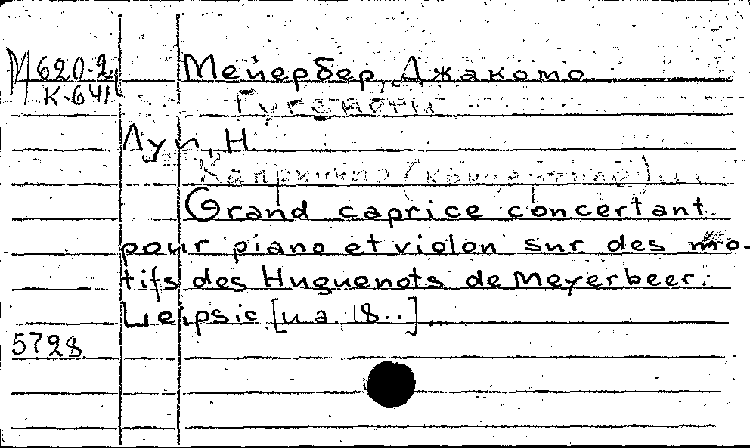 М 620-2 Мейербер, Джакомо
К-641 Гугеноты
Луи, Н.
Каприччио (концертное)
Grand caprice concertant
pour piano et violon sur des mo-
tifs des Huguenots de Meyerbeer.
Leipsic [и.а. 18..]
5728